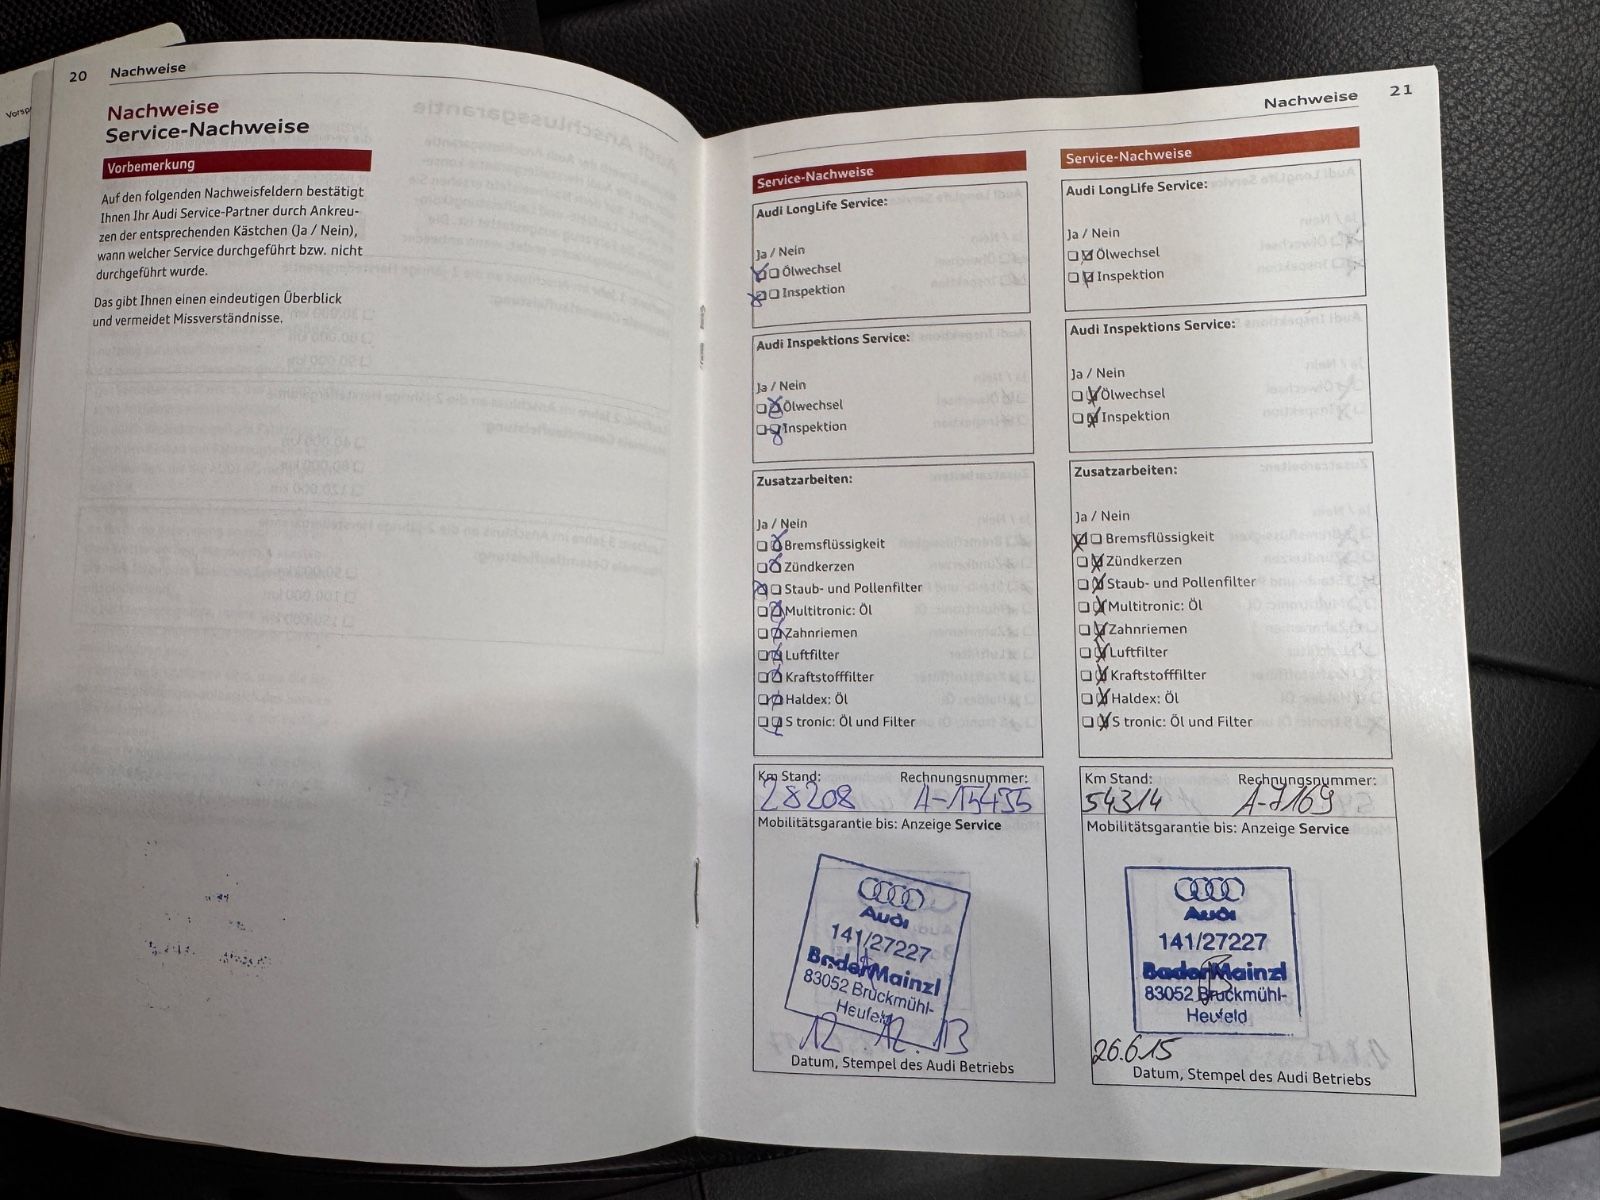 20 Nachweise
Nachweise
Service-Nachweise
Vorbemerkung
Auf den folgenden Nachweisfeldern bestätigt
Ihnen Ihr Audi Service-Partner durch Ankreu-
zen der entsprechenden Kästchen (Ja / Nein),
wann welcher Service durchgeführt bzw. nicht
durchgeführt wurde.
Das gibt Ihnen einen eindeutigen Überblick
und vermeidet Missverständnisse.
Nachweise 21
Service-Nachweise
Audi LongLife Service:
Ja / Nein
Ölwechsel
Inspektion
Audi Inspektions Service:
Ja / Nein
Ölwechsel
Inspektion
Zusatzarbeiten:
Ja / Nein
Bremsflüssigkeit
Zündkerzen
Staub- und Pollenfilter
Multitronic: Öl
Zahnriemen
Luftfilter
Kraftstofffilter
Haldex: Öl
S tronic: Öl und Filter
Km Stand: Rechnungsnummer:
28208 A-15435
Mobilitätsgarantie bis: Anzeige Service
Audi
141/27227
BaderMainzl
83052 Bruckmühl-
Heufeld
12.12.13
Datum, Stempel des Audi Betriebs
Service-Nachweise
Audi LongLife Service:
Ja / Nein
Ölwechsel
Inspektion
Audi Inspektions Service:
Ja / Nein
Ölwechsel
Inspektion
Zusatzarbeiten:
Ja / Nein
Bremsflüssigkeit
Zündkerzen
Staub- und Pollenfilter
Multitronic: Öl
Zahnriemen
Luftfilter
Kraftstofffilter
Haldex: Öl
S tronic: Öl und Filter
Km Stand: Rechnungsnummer:
54314 A-7169
Mobilitätsgarantie bis: Anzeige Service
Audi
141/27227
BaderMainzl
83052 Bruckmühl-
Heufeld
26.6.15
Datum, Stempel des Audi Betriebs